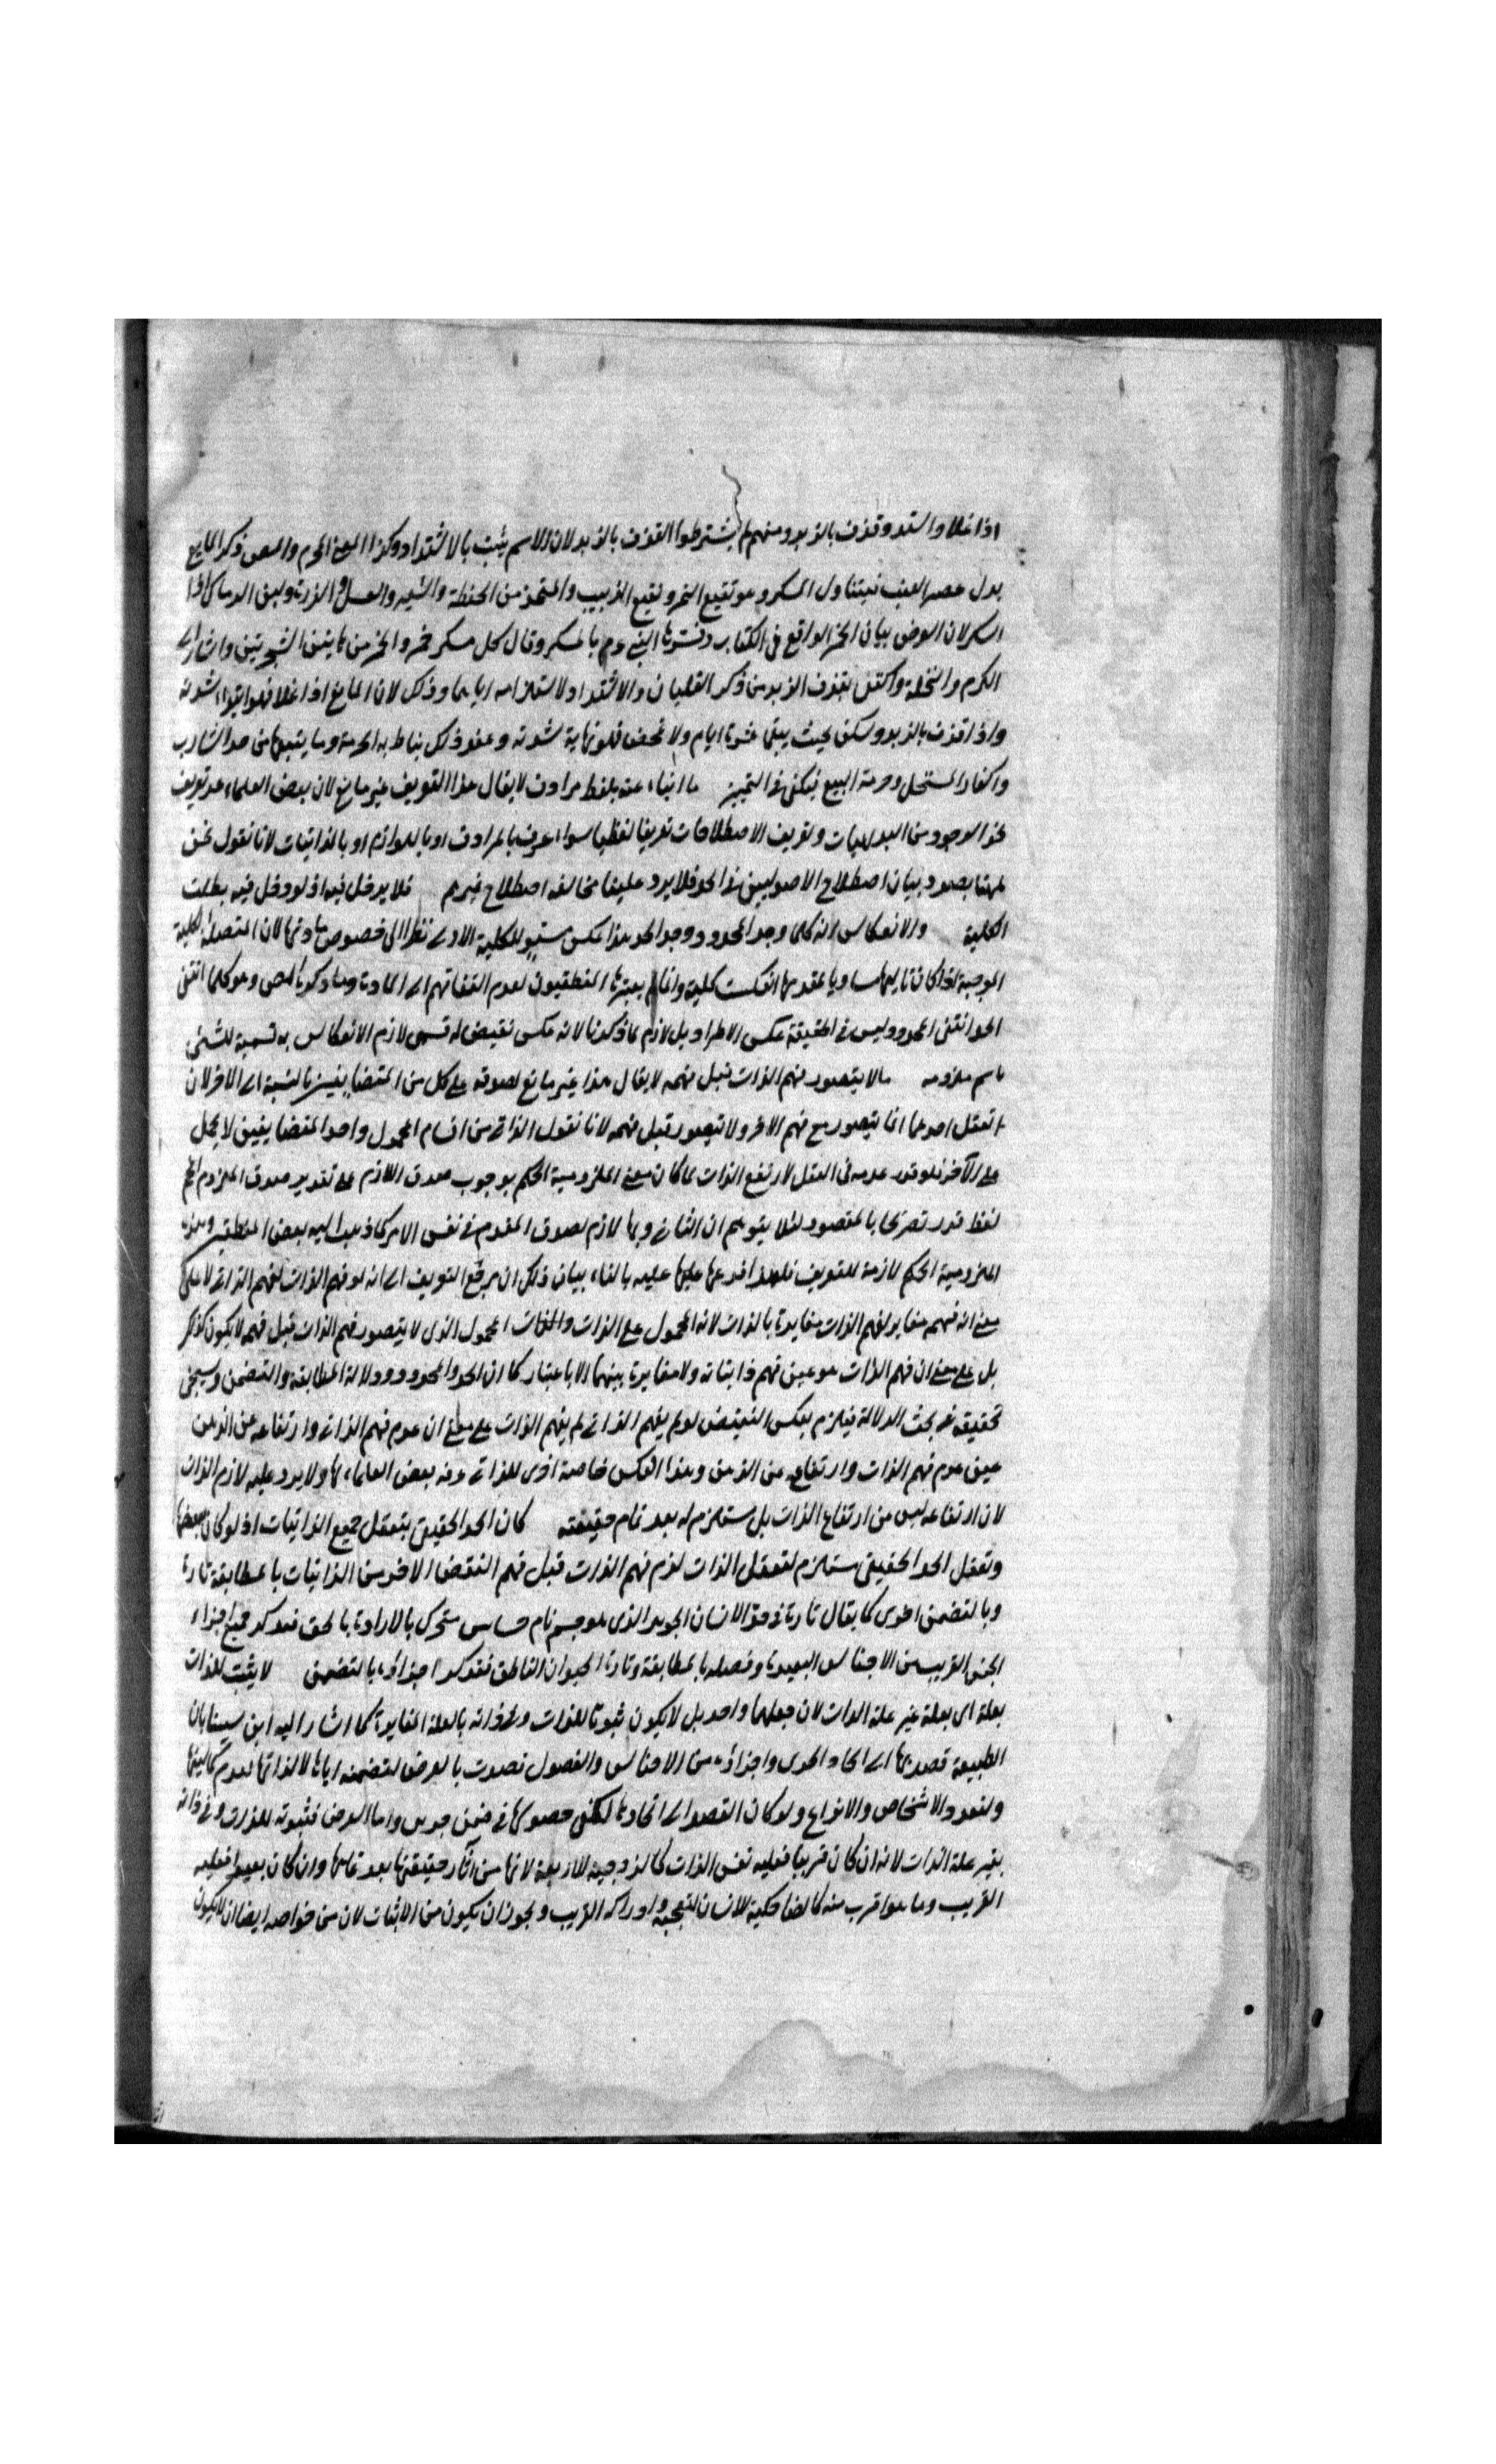 اذا غلا واشتد وقذف بالزبد ومنهم لم يشترطوا القذف بالزبد لان الاسم يثبت بالاشتداد وكذا المعنى المحرم والمص ذكر المايع
بدل عصير العنب فيتناول المسكر وهو نقيع التمر ونقيع الزبيب والمتخذ من الحنطة والشعير والعسل والذرة ولبن الرماك اذا
اسكر لان الغرض بيان الخمر الواقع في الكتاب وفسرها النبي عم بالمسكر وقال كل مسكر خمر والخمر من هاتين الشجرتين واشار الى
الكرم والنخلة واكتفى بقذف الزبد من ذكر الغليان والاشتداد لاستلزامه اياهما وذلك لان المايع اذا غلا فهو ابتداء شدته
واذا قذف بالزبد وسكن بحيث يبقى عشرة ايام ولا يحمض فهو نهاية شدته وعند ذلك يناط به الحرمة وما يتبعها من حد الشارب
واكفار المستحل وحرمة البيع فيكفي في التمييز ما انباء عنه بلفظ مرادف لا يقال هذا التعريف غير مانع لان بعض العلماء عد تعريف
نحو الوجود من البديهيات وتعريف الاصطلاحات تعريفا لفظيا سواء عرف بالمرادف او باللوازم او بالذاتيات لانا نقول نحن
ههنا بصدد بيان اصطلاح الاصوليين في الحد فلا يرد علينا مخالفة اصطلاح غيرهم فلا يدخل فيه اذ لو دخل فيه بطلت
الكلية والانعكاس انه كلما وجد المحدود وجد الحد هذا عكس مستو للكلية الاولى نظرا الى خصوص مادتها لان المتصلة الكلية
الموجبة اذا كان تاليها مساويا لمقدمها انعكست كلية وانما لم يعتبرها المنطقيون لعدم التفاتهم الى المادة وما ذكره المص وهو كلما انتفى
الحد انتفى المحدود ليس في الحقيقة عكس الاطراد بل لازم لما ذكرنا لانه عكس نقيض له فسمى لازم الانعكاس به تسمية للشئ
باسم ملزومه ما لا يتصور فهم الذات قبل فهمه لا يقال هذا غير مانع لصدقه على كل من المتضايفين بالنسبة الى الاخر لان
تعقل احدهما انما يتصور مع فهم الاخر ولا يتصور قبل فهمه لانا نقول الذاتي من اقسام المحمول واحد المتضايفين لا يحمل
على الآخر فلو قدر عدمه في العقل لارتفع الذات لما كان معنى الملزومية الحكم بوجوب صدق اللازم على تقدير صدق الملزوم اقحم
لفظ قدر تصريحا بالمقصود لئلا يتوهم ان التالي وبها لازم لصدق المقدم في نفس الامر كما ذهب اليه بعض المنطقيين وهذه
الملزومية الحكم لازمة للتعريف فلهذا فرعها عليه بالفاء بيان ذلك ان مرجع التعريف الى انه لو فهم الذات لفهم الذاتي لا على
معنى ان فهمه مغاير لفهم الذات مغايرة بالذات لانه المحمول على الذات والمحمول الذي لا يتصور فهم الذات قبل فهمه لا يكون كذلك
بل على معنى ان فهم الذات هو عين فهم ذاتياته ولا مغايرة بينهما الا باعتبار كما ان الحد والمحدود ودلالة المطابقة والتضمن وسيجئ
تحقيقه في بحث الدلالة فيلزم بعكس النقيض لو لم يفهم الذاتي لم يفهم الذات على معنى ان عدم فهم الذاتي وارتفاعه عن الذهن
عين عدم فهم الذات وارتفاعه عن الذهن وهذا العكس خاصة اخرى للذاتي عرفه بعض العلماء بها ولا يرد عليه لازم الذات
لان ارتفاعه ليس عين ارتفاع الذات بل مستلزم له بعد تمام حقيقته كان الحد الحقيقي بتعقل جميع الذاتيات اذ لو كان ببعضها
وتعقل الحد الحقيقي مستلزم لتعقل الذات لزم فهم الذات قبل فهم البعض الاخر من الذاتيات بالمطابقة تارة
وبالتضمن اخرى كما يقال تارة في حد الانسان الجوهر الذي هو جسم نام حساس متحرك بالارادة ناطق فتذكر جميع اجزاء
الجنس القريب من الاجناس البعيدة وفصله بالمطابقة وتارة الحيوان الناطق فتذكر اجزاؤه بالتضمن لا يثبت للذات
بعلة اى بعلة غير علة الذات لان جعلهما واحد بل لا يكون ثبوتا للذات وفي ذاته بالعلة المغايرة كما اشار اليه ابن سينا بان
الطبيعة قصدتها الى ايجاد واجزاؤه من الاجناس والفصول قصدت بالعرض لتضمنه اياها لا لذاتها لعدم كماليتها
ولتعدد الاشخاص والانواع ولو كان القصد الى اتحادها لكفى حصولها في ضمن واما العرض فثبوته للذات وفي ذاته
بغير علة الذات لانه ان كان قريبا فعليه نفس الذات كالزوجية للاربعة لانها من آثار حقيقتها بعد تمامها وان كان بعيدا فعليه
القريب وما هو اقرب منه كالضاحكية للانسان لتعجبه وادراكه الغريب ويجوز ان يكون من الاثبات لان من خواصه ايضا ان لا يكون